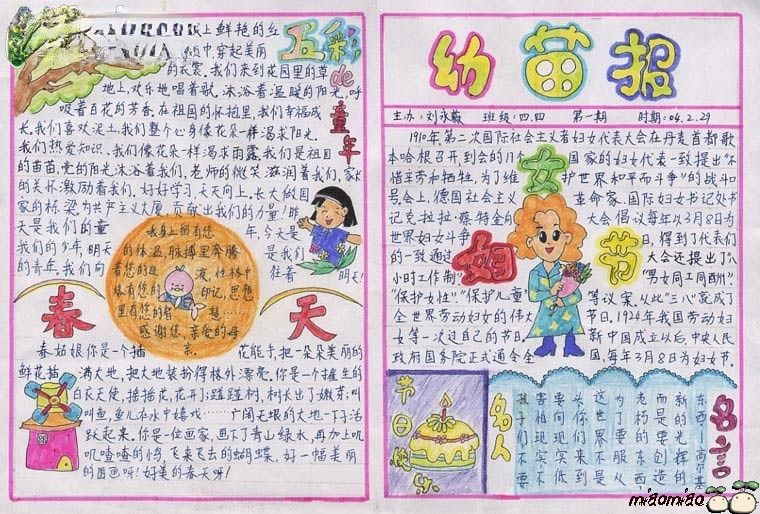 上鲜艳的红
五彩de童年
中穿起美丽
的衣裳。我们来到花园里的草
地上,欢乐地唱着歌。沐浴着温暖的阳光,呼
吸着百花的芳香。在祖国的怀抱里,我们幸福成
长。我们喜欢泥土,我们整个心身像花朵一样渴求阳光。
我们热爱知识,我们像花朵一样渴求雨露。我们是祖国
的苗苗,党的阳光沐浴着我们,老师的微笑滋润着我们,家长
的关怀激励着我们,好好学习,天天向上。长大做国
家的栋梁,为共产主义大厦,贡献出我们的力量!昨
天是我们的童年,今天是
我们的少年,明天是我们
的青年。我们向往着明天!
我身上留有您
的体温,脉搏里奔腾
着您的血液,性格中
烙有您的印记,思想
里有您的智慧……
感谢您,亲爱的母
亲。
春天
春姑娘你是个插花能手,把一朵朵美丽的
鲜花插满大地,把大地装扮得格外漂亮。你是一个催生的
白衣天使,摇摇花,花开了;碰碰树,树长出了嫩芽;叫
叫鱼,鱼儿在水中嬉戏……广阔无垠的大地一下子活
跃起来。你是一位画家,画下了青山绿水,再加上叽
叽喳喳的小鸟,飞来飞去的蝴蝶,好一幅美丽
的图画呀!好美的春天呀!
幼苗报
主办:刘永薇 班级:四.四 第一期 时期:04.2.29
1910年,第二次国际社会主义者妇女代表大会在丹麦首都歌
本哈根召开,到会的17个国家的妇女代表一致提出"不
惜辛劳和牺牲,为了维护世界和平而斗争"的战斗口
号。会上,德国社会主义革命家、国际妇女书记处书
记克拉拉·蔡特金向大会倡议每年以3月8日为
世界妇女斗争日,得到了代表们
的一致通过。大会还提出了"八
小时工作制"、"男女同工同酬"、
"保护女性"、"保护儿童"等议案,从此"三八"就成了
全世界劳动妇女的伟大节日。1924年我国劳动妇
女第一次过自己的节日。新中国成立以后,中央人民
政府国务院正式通令全国,每年3月8日为妇女节。
妇女节
节日快乐
名人名言
东西—高尔基
新的光辉的
而是要创造
老朽的东西,
为了不服从
这世界,是
你们来到
头,
相实现不低
害向现实
孩子们,不要
miaomiao